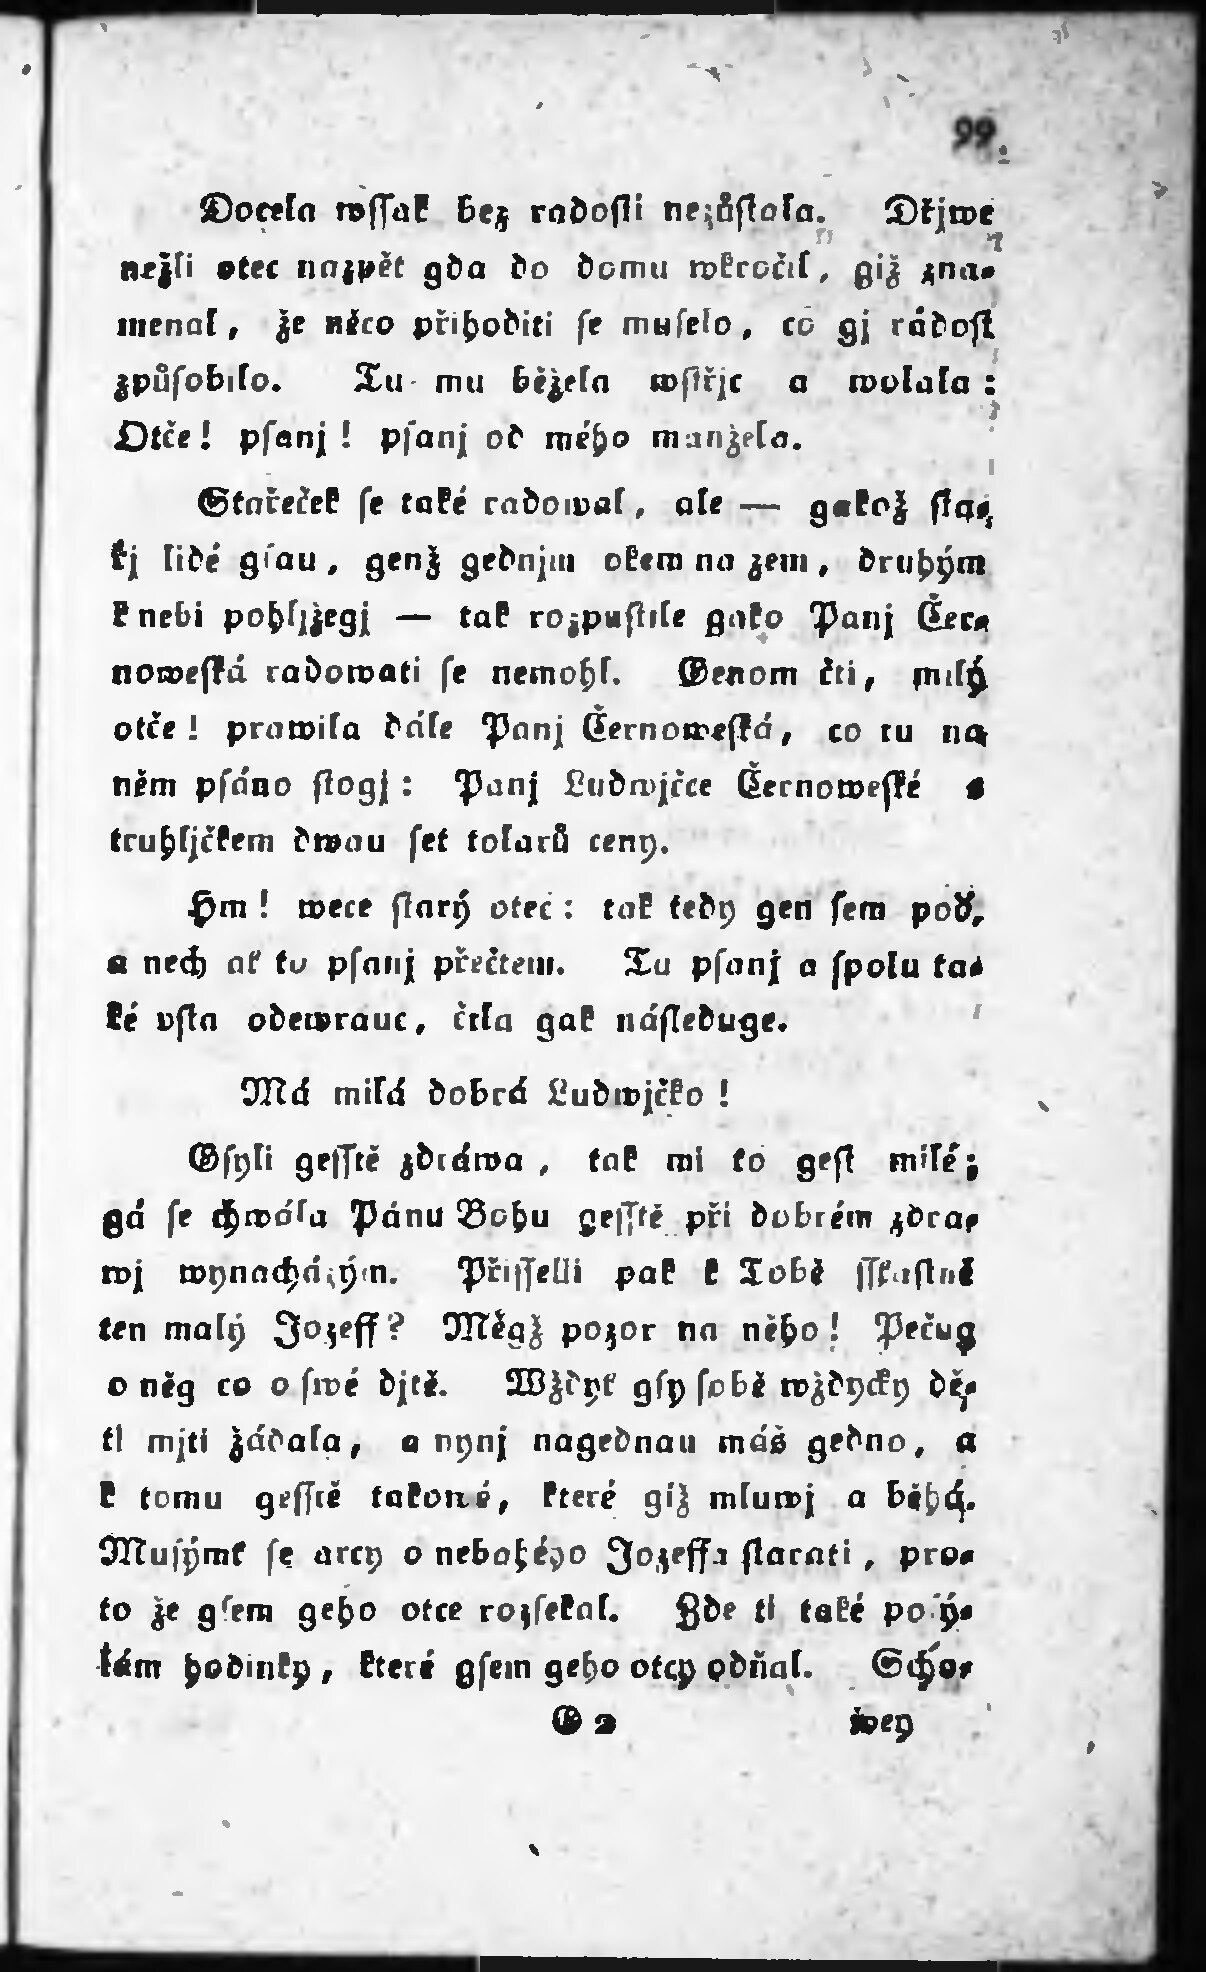 99
Docela wſſak bez radoſti nezůſtala. Dřjwe
nežli otec nazpět gda do domu wkročil, giž zna-
menal, že něco přihoditi ſe muſelo, co gj rádoſt
způſobilo. Tu mu běžela wſtřjc a wolala:
Otče! pſanj! pſanj od mého manžela.
Stařeček ſe také radowal, ale — gakož ſta-
řj lidé gſau, genž gednjm okem na zem, druhým
k nebi pohljžegj — tak rozpuſtile gako Panj Čer-
noweſká radowati ſe nemohl. Genom čti, milý
otče! prawila dále Panj Černoweſká, co tu na
něm pſáno ſtogj: Panj Ludwjčce Černoweſké s
truhljčkem dwau ſet tolarů ceny.
Hm! wece ſtarý otec: tak tedy gen ſem poď,
a nech ať to pſanj přečtem. Tu pſanj a ſpolu ta-
ké vſta odewrauc, čtla gak náſleduge.
Má milá dobrá Ludwjčko!
Gſyli geſſtě zdráwa, tak mi to geſt milé;
gá ſe chwála Pánu Bohu geſſtě při dobrém zdra-
wj wynacházým. Přiſſelli pak k Tobě ſſťaſtně
ten malý Jozeff? Měgž pozor na něho! Pečug
o něg co o ſwé djtě. Wždyť gſy ſobě wždycky dě-
ti mjti žádala, a nynj nagednau máš gedno, a
k tomu geſſtě takowé, které giž mluwj a běhá.
Muſýmť ſe arcy o nebohého Jozeffa ſtarati, pro-
to že gſem geho otce rozſekal. Zde ti také poſý-
lám hodinky, které gſem geho otcy odňal. Scho-
G 2 wey